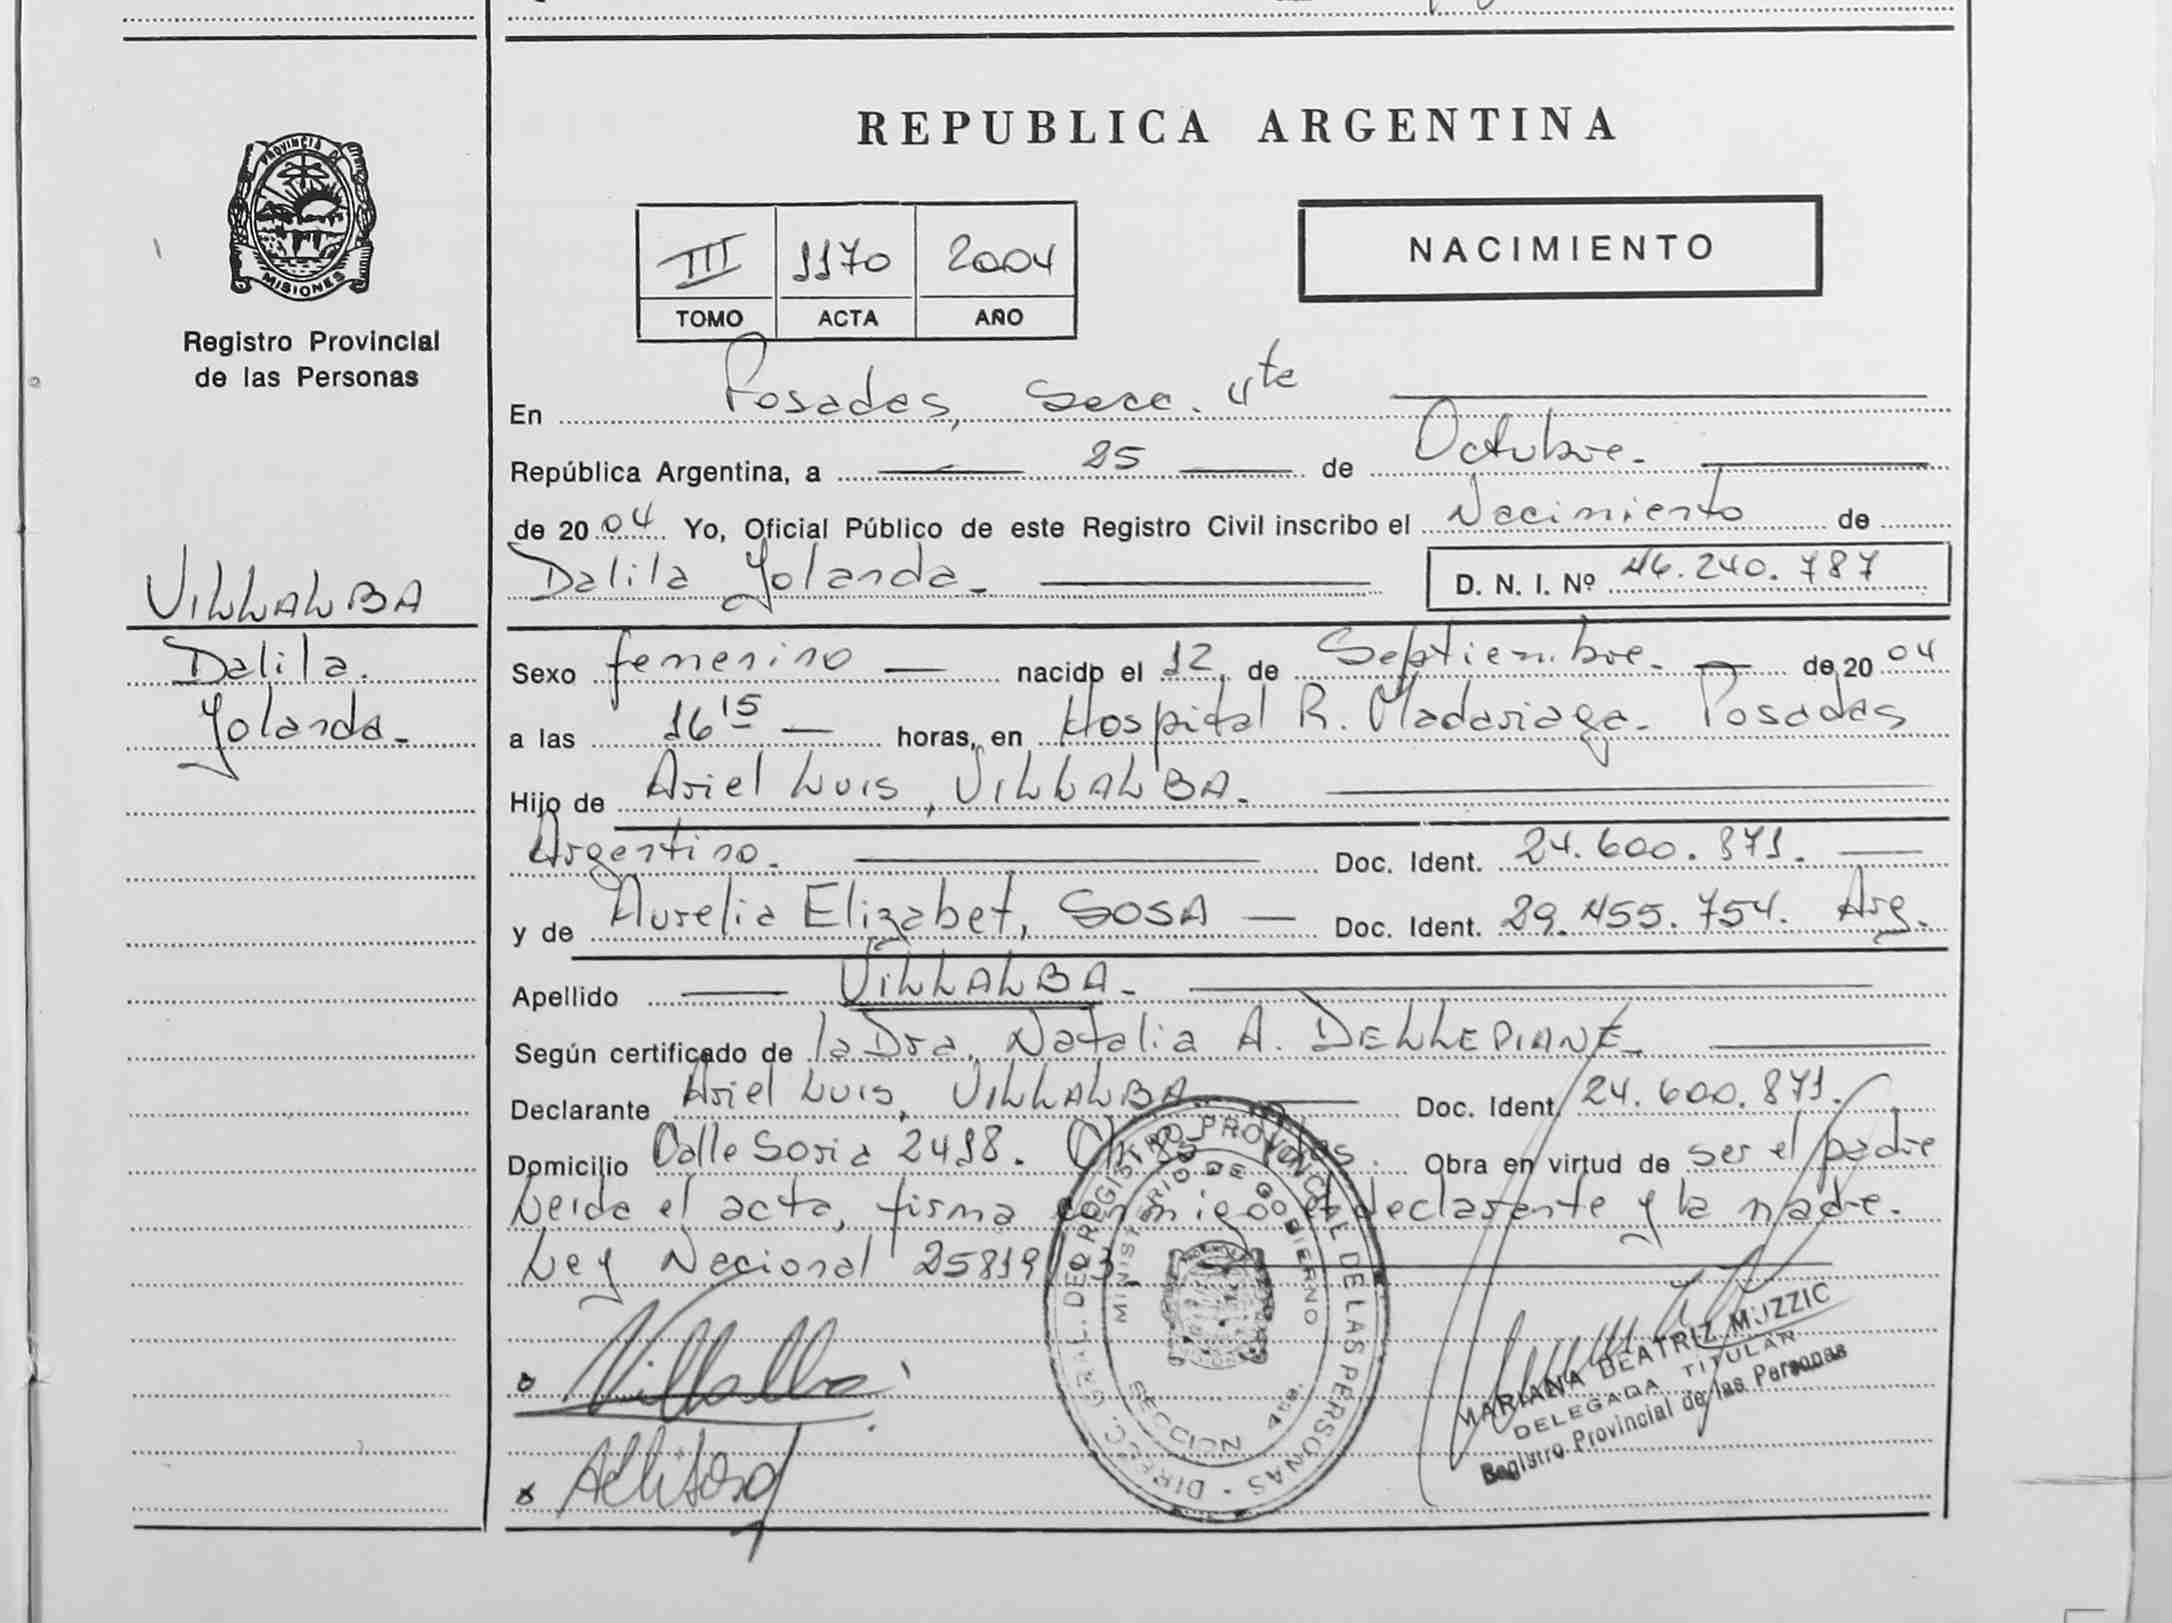 PROVINCIA DE
MISIONES
Registro Provincial
de las Personas
VILLALBA
Dalila.
Yolanda.-
REPUBLICA ARGENTINA
III 1170 2004
TOMO ACTA AÑO
NACIMIENTO
En Posadas, Secc. 4ta
República Argentina, a 25 de Octubre.
de 2004 Yo, Oficial Público de este Registro Civil inscribo el Nacimiento de
Dalila Yolanda.- D. N. I. Nº 46.240.787
Sexo femenino nacido el 12 de Septiembre. de 2004
a las 16 15 horas, en Hospital R. Madariaga. Posadas
Hijo de Ariel Luis, VILLALBA.
Argentino. Doc. Ident. 24.600.871.
y de Aurelia Elizabet, SOSA Doc. Ident. 29.455.754. Arg.
Apellido VILLALBA.-
Según certificado de la Dra. Natalia A. DELLEPIANE
Declarante Ariel Luis, VILLALBA. Doc. Ident. 24.600.871.
Domicilio Calle Soria 2418. Ch. Pdas. Obra en virtud de ser el padre
Leida el acta, firma conmigo el declarante y la madre.
Ley Nacional 25819/03
Villalba
MARIANA BEATRIZ MUZZIC
DELEGADA TITULAR
Registro Provincial de las Personas
DIRECC. GRAL. DEL REGISTRO PROVINCIAL DE LAS PERSONAS
MINISTERIO DE GOBIERNO
SECCION 4ta.